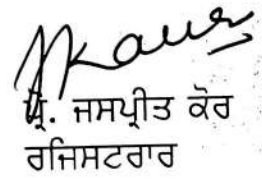 Jkaur
ਪ੍ਰੋ. ਜਸਪ੍ਰੀਤ ਕੌਰ
ਰਜਿਸਟਰਾਰ